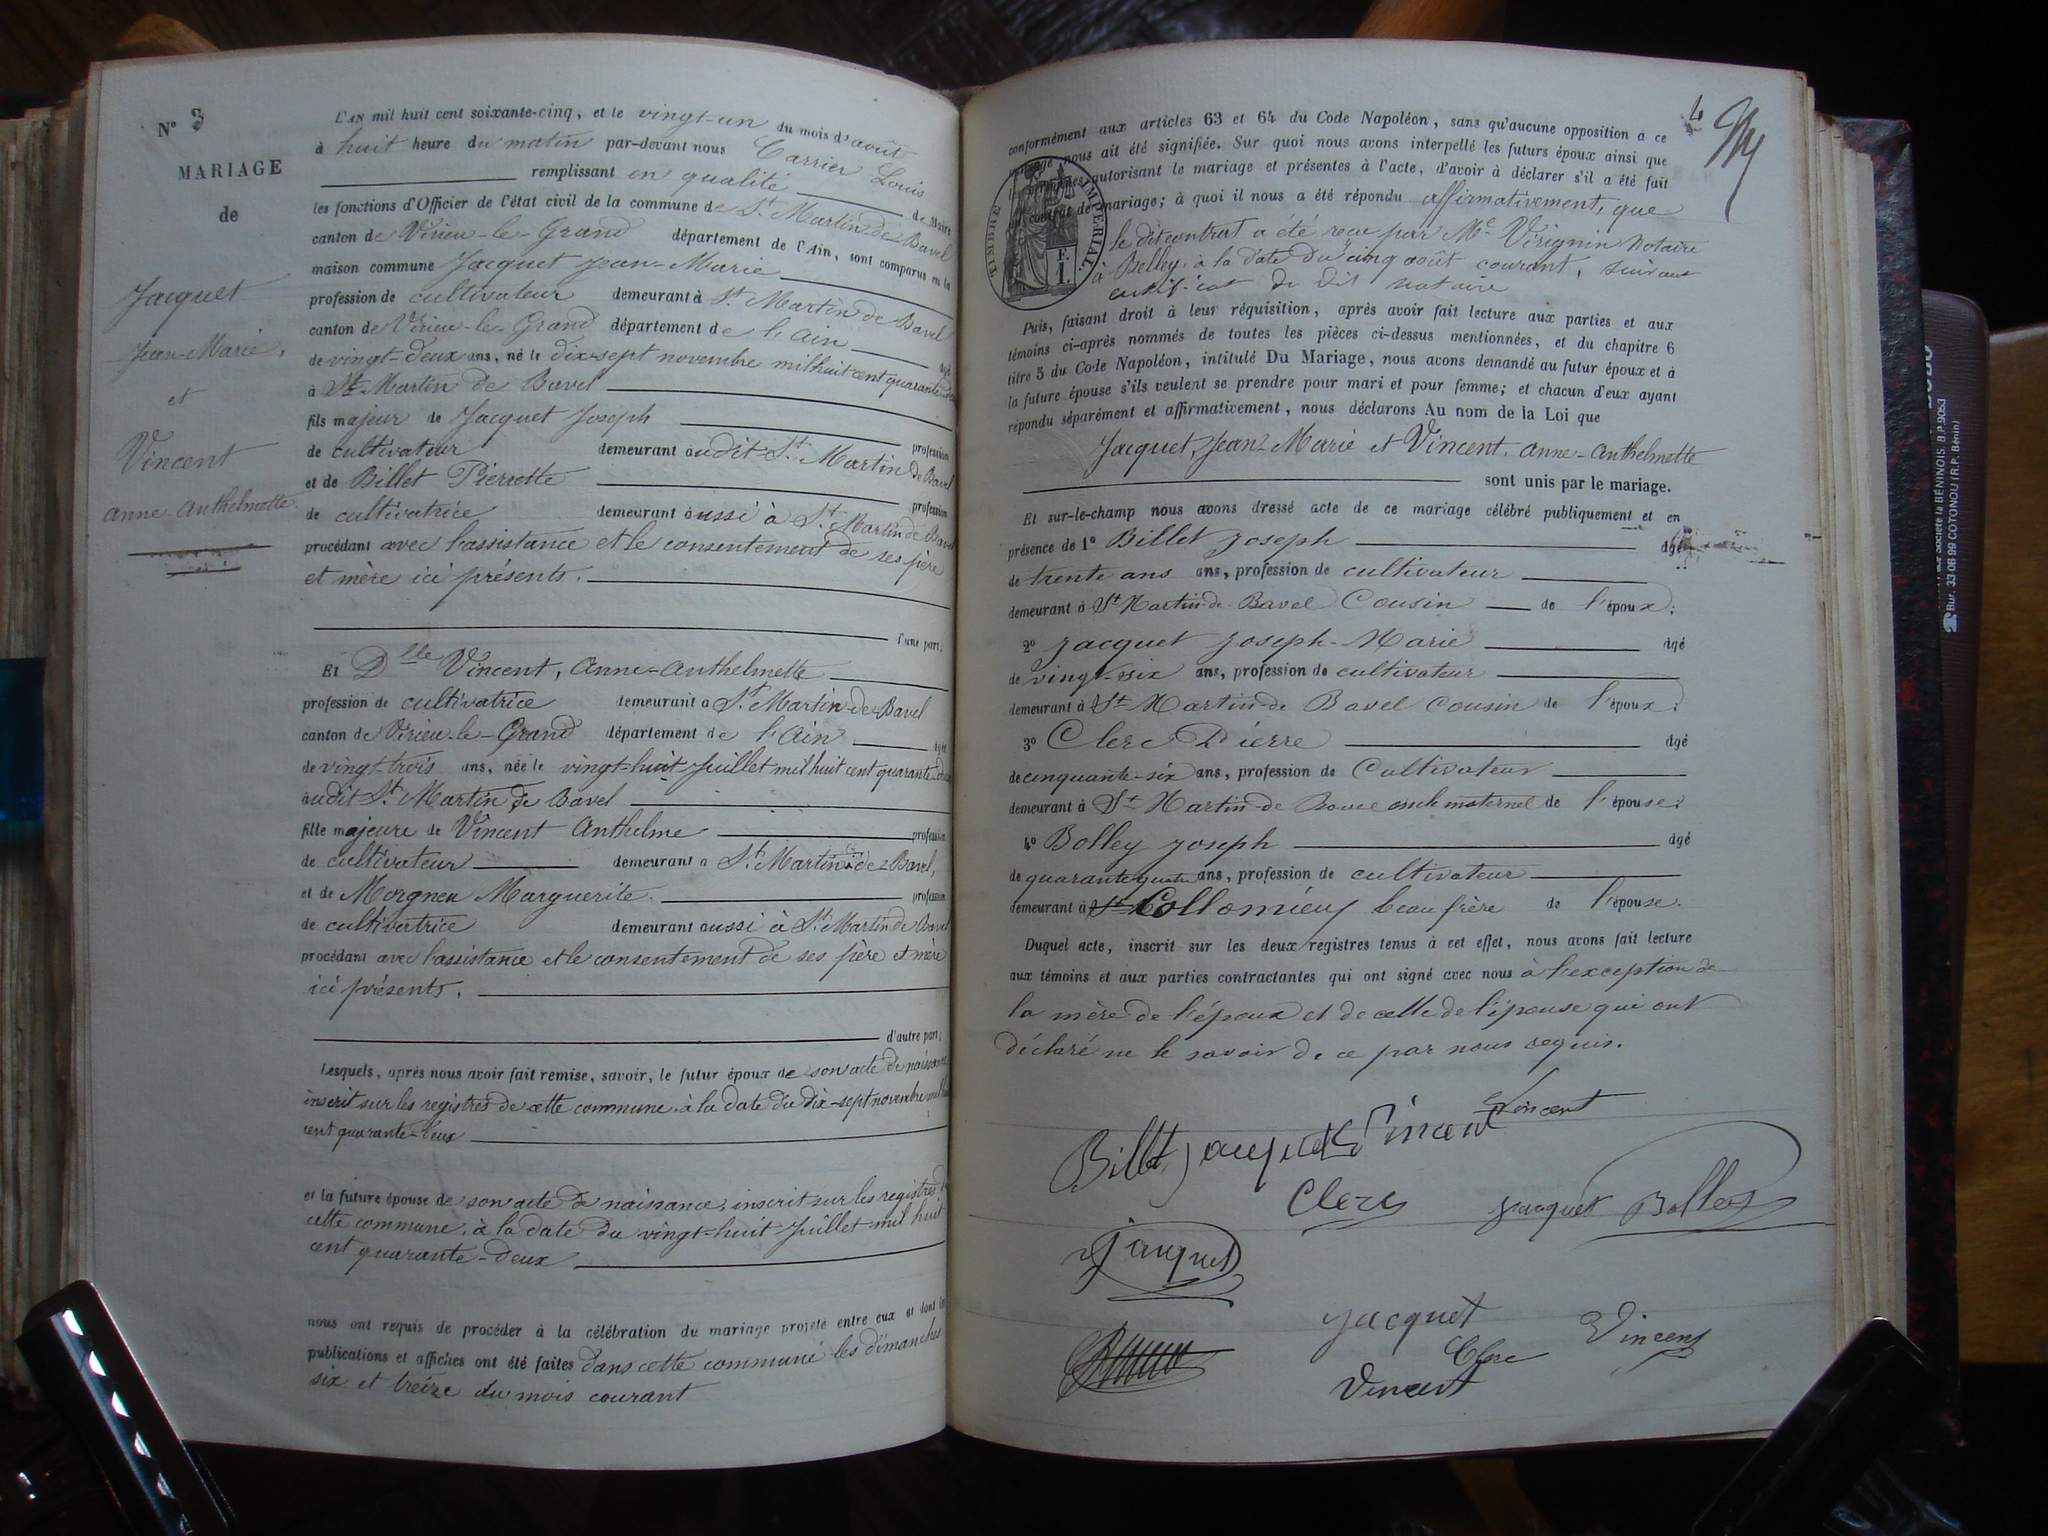 N° 3
MARIAGE
de
Jacquet
Jean-Marie,
et
Vincent
Anne-Anthelmette.
L'AN mil huit cent soixante-cinq, et le vingt-un du mois d'août
à huit heure du matin par-devant nous Carrier Louis
remplissant en qualité de Maire
les fonctions d'Officier de l'état civil de la commune de St Martin de Bavel
canton de Virieu-le-Grand département de l'Ain, sont comparus en la
maison commune Jacquet Jean-Marie
profession de cultivateur demeurant à St Martin de Bavel
canton de Virieu-le-Grand département de l'Ain âgé
de vingt-deux ans, né le dix-sept novembre mil huit cent quarante-deux
à St Martin de Bavel
fils majeur de Jacquet Joseph profession
de cultivateur demeurant audit St Martin de Bavel
et de Billet Pierrette profession
de cultivatrice demeurant aussi à St Martin de Bavel
procédant avec l'assistance et le consentement de ses père
et mère ici présents.
l'une part;
Et Dlle Vincent, Anne-Anthelmette
profession de cultivatrice demeurant à St Martin de Bavel
canton de Virieu-le-Grand département de l'Ain âgée
de vingt-trois ans, née le vingt-huit Juillet mil huit cent quarante-deux
audit St Martin de Bavel
fille majeure de Vincent Anthelme profession
de cultivateur demeurant à St Martin de Bavel,
et de Morgneu Marguerite profession
de cultivatrice demeurant aussi à St Martin de Bavel
procédant avec l'assistance et le consentement de ses père et mère
ici présents.
d'autre part;
Lesquels, après nous avoir fait remise, savoir, le futur époux de son acte de naissance
inscrit sur les registres de cette commune à la date du dix-sept novembre mil huit
cent quarante-deux
et la future épouse de son acte de naissance, inscrit sur les registres de
cette commune, à la date du vingt-huit Juillet mil huit
cent quarante-deux
nous ont requis de procéder à la célébration du mariage projeté entre eux et dont les
publications et affiches ont été faites dans cette commune les dimanches
six et treize du mois courant
4
conformément aux articles 63 et 64 du Code Napoléon, sans qu'aucune opposition à ce
mariage nous ait été signifiée. Sur quoi nous avons interpellé les futurs époux ainsi que
les personnes autorisant le mariage et présentes à l'acte, d'avoir à déclarer s'il a été fait
contrat de mariage; à quoi il nous a été répondu affirmativement, que
le dit contrat a été reçu par Me Virignin notaire
à Belley, à la date du cinq août courant, suivant
certificat du dit notaire
TIMBRE IMPERIAL.
F.
1.
Puis, faisant droit à leur réquisition, après avoir fait lecture aux parties et aux
témoins ci-après nommés de toutes les pièces ci-dessus mentionnées, et du chapitre 6
titre 5 du Code Napoléon, intitulé Du Mariage, nous avons demandé au futur époux et à
la future épouse s'ils veulent se prendre pour mari et pour femme; et chacun d'eux ayant
répondu séparément et affirmativement, nous déclarons Au nom de la Loi que
Jacquet, Jean-Marie et Vincent, Anne-Anthelmette
sont unis par le mariage.
Et sur-le-champ nous avons dressé acte de ce mariage célébré publiquement et en
présence de 1° Billet Joseph âgé
de trente ans ans, profession de cultivateur
demeurant à St Martin-de-Bavel Cousin de l'époux;
2° Jacquet Joseph-Marie âgé
de vingt-six ans, profession de cultivateur
demeurant à St Martin-de Bavel Cousin de l'époux;
3° Clerc Pierre âgé
de cinquante-six ans, profession de Cultivateur
demeurant à St Martin-de Bavel oncle maternel de l'épouse;
4° Bolley Joseph âgé
de quarante quatre ans, profession de cultivateur
demeurant à Collomieu beau frère de l'épouse.
Duquel acte, inscrit sur les deux registres tenus à cet effet, nous avons fait lecture
aux témoins et aux parties contractantes qui ont signé avec nous à l'exception de
la mère de l'époux et de celle de l'épouse qui ont
déclaré ne le savoir de ce par nous requis.
Vincent
Billet Jacquet Vincent
Clerc Jacquet Bolley
Jacquet
Jacquet
Clerc Vincent
Vincent
BÉNINOIS. B.P.9053
Bur. 33 06 99 COTONOU (R.P. Bénin)